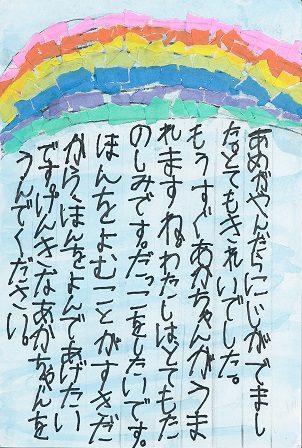 あめがやんだらにじがでまし
た。とてもきれいでした。
もうすぐあかちゃんがうま
れますね。わたしはとてもた
のしみです。だっこをしたいです。
ほんをよむことがすきだ
から、ほんをよんであげたい
です。げんきなあかちゃんを
うんでください。